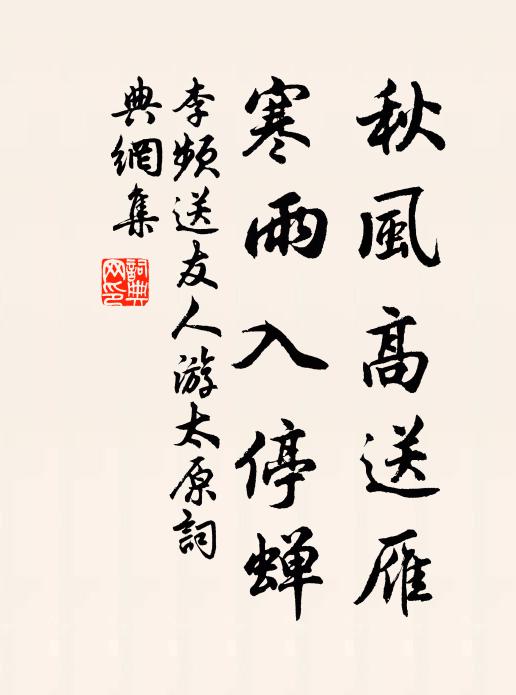 秋風高送雁
寒雨入停蝉
李频送友人游太原詞
典網集
詞典网印